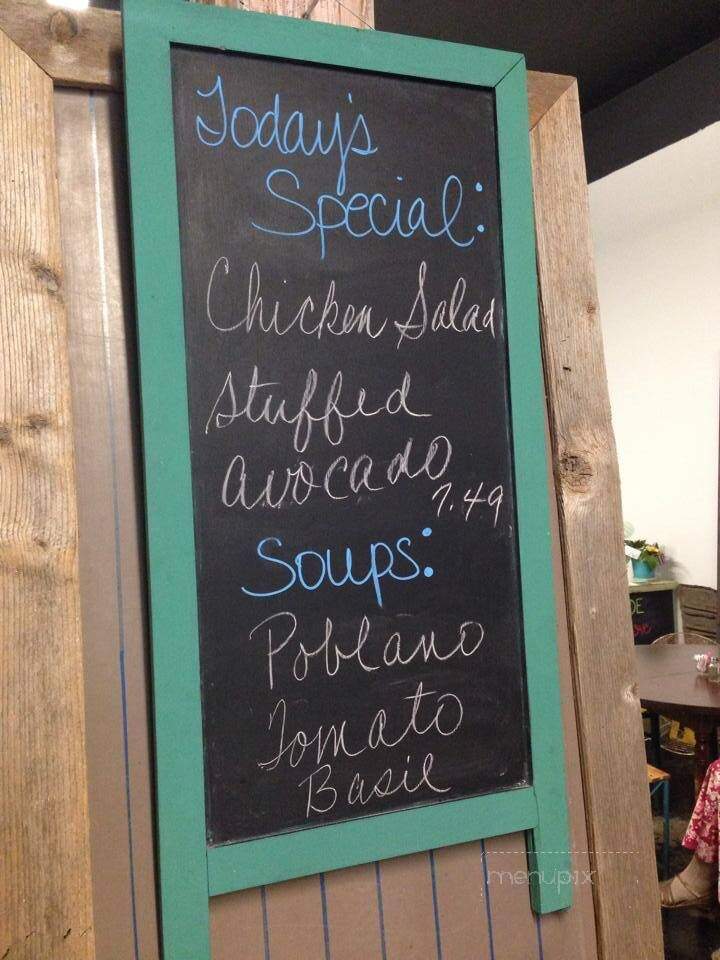 Today's
Special:
Chicken Salad
Stuffed
Avocado
7.49
Soups:
Poblano
Tomato
Basil
DE
menupix